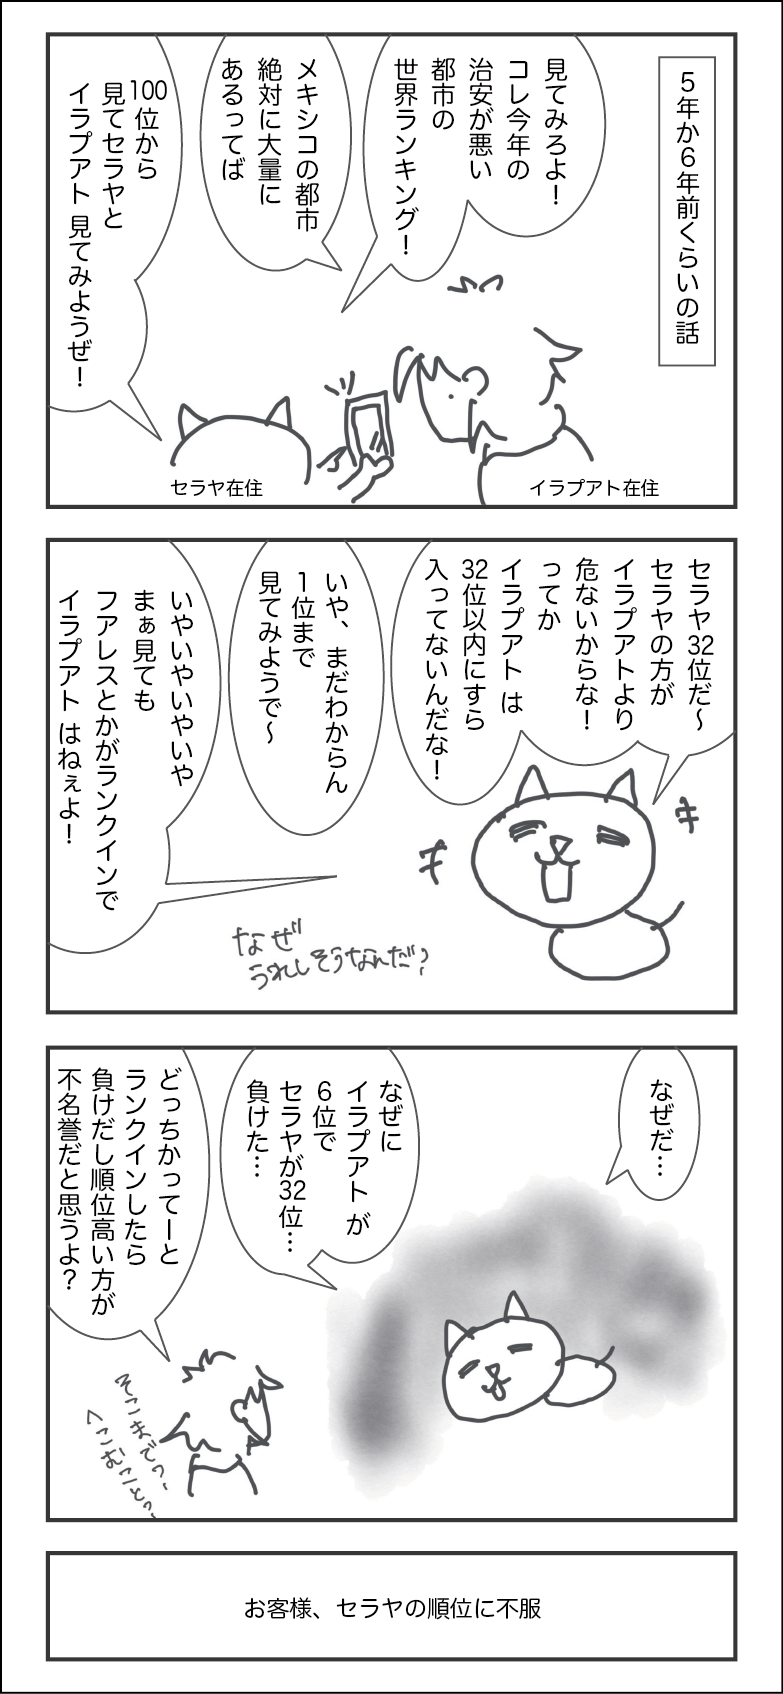 5年か6年前くらいの話
見てみろよ！
コレ今年の
治安が悪い
都市の
世界ランキング！
メキシコの都市
絶対に大量に
あるってば
100位から
見てセラヤと
イラプアト 見てみようぜ！
セラヤ在住
イラプアト在住
セラヤ32位だ〜
セラヤの方が
イラプアトより
危ないからな！
ってか
イラプアト は
32位以内にすら
入ってないんだな！
いや、まだわからん
1位まで
見てみようで〜
いやいやいやいや
まぁ見ても
フアレスとかがランクインで
イラプアト はねぇよ！
なぜ
うれしそうなんだ？
なぜだ…
なぜに
イラプアト が
6位で
セラヤが32位…
負けた…
どっちかってーと
ランクインしたら
負けだし順位高い方が
不名誉だと思うよ？
そこまでっ、
へこむこと？、
お客様、セラヤの順位に不服